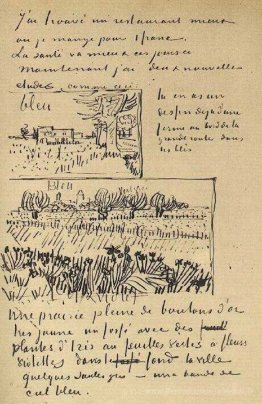 J'ai trouvé un restaurant mieux
ou je mange pour 1 franc.
La santé va mieux ces jours ci
Maintenant j'ai deux nouvelles
etudes comme ceci
bleu
tu en as un
dessin deja d'une
ferme au bord de la
grande route dans
les blés
Bleu
Une prairie pleine de boutons d'or
tres jaune un fossé avec des
plantes d'Iris aux feuilles vertes a fleurs
violettes dans le fond la ville
quelques saules gris – une bande de
ciel bleu.